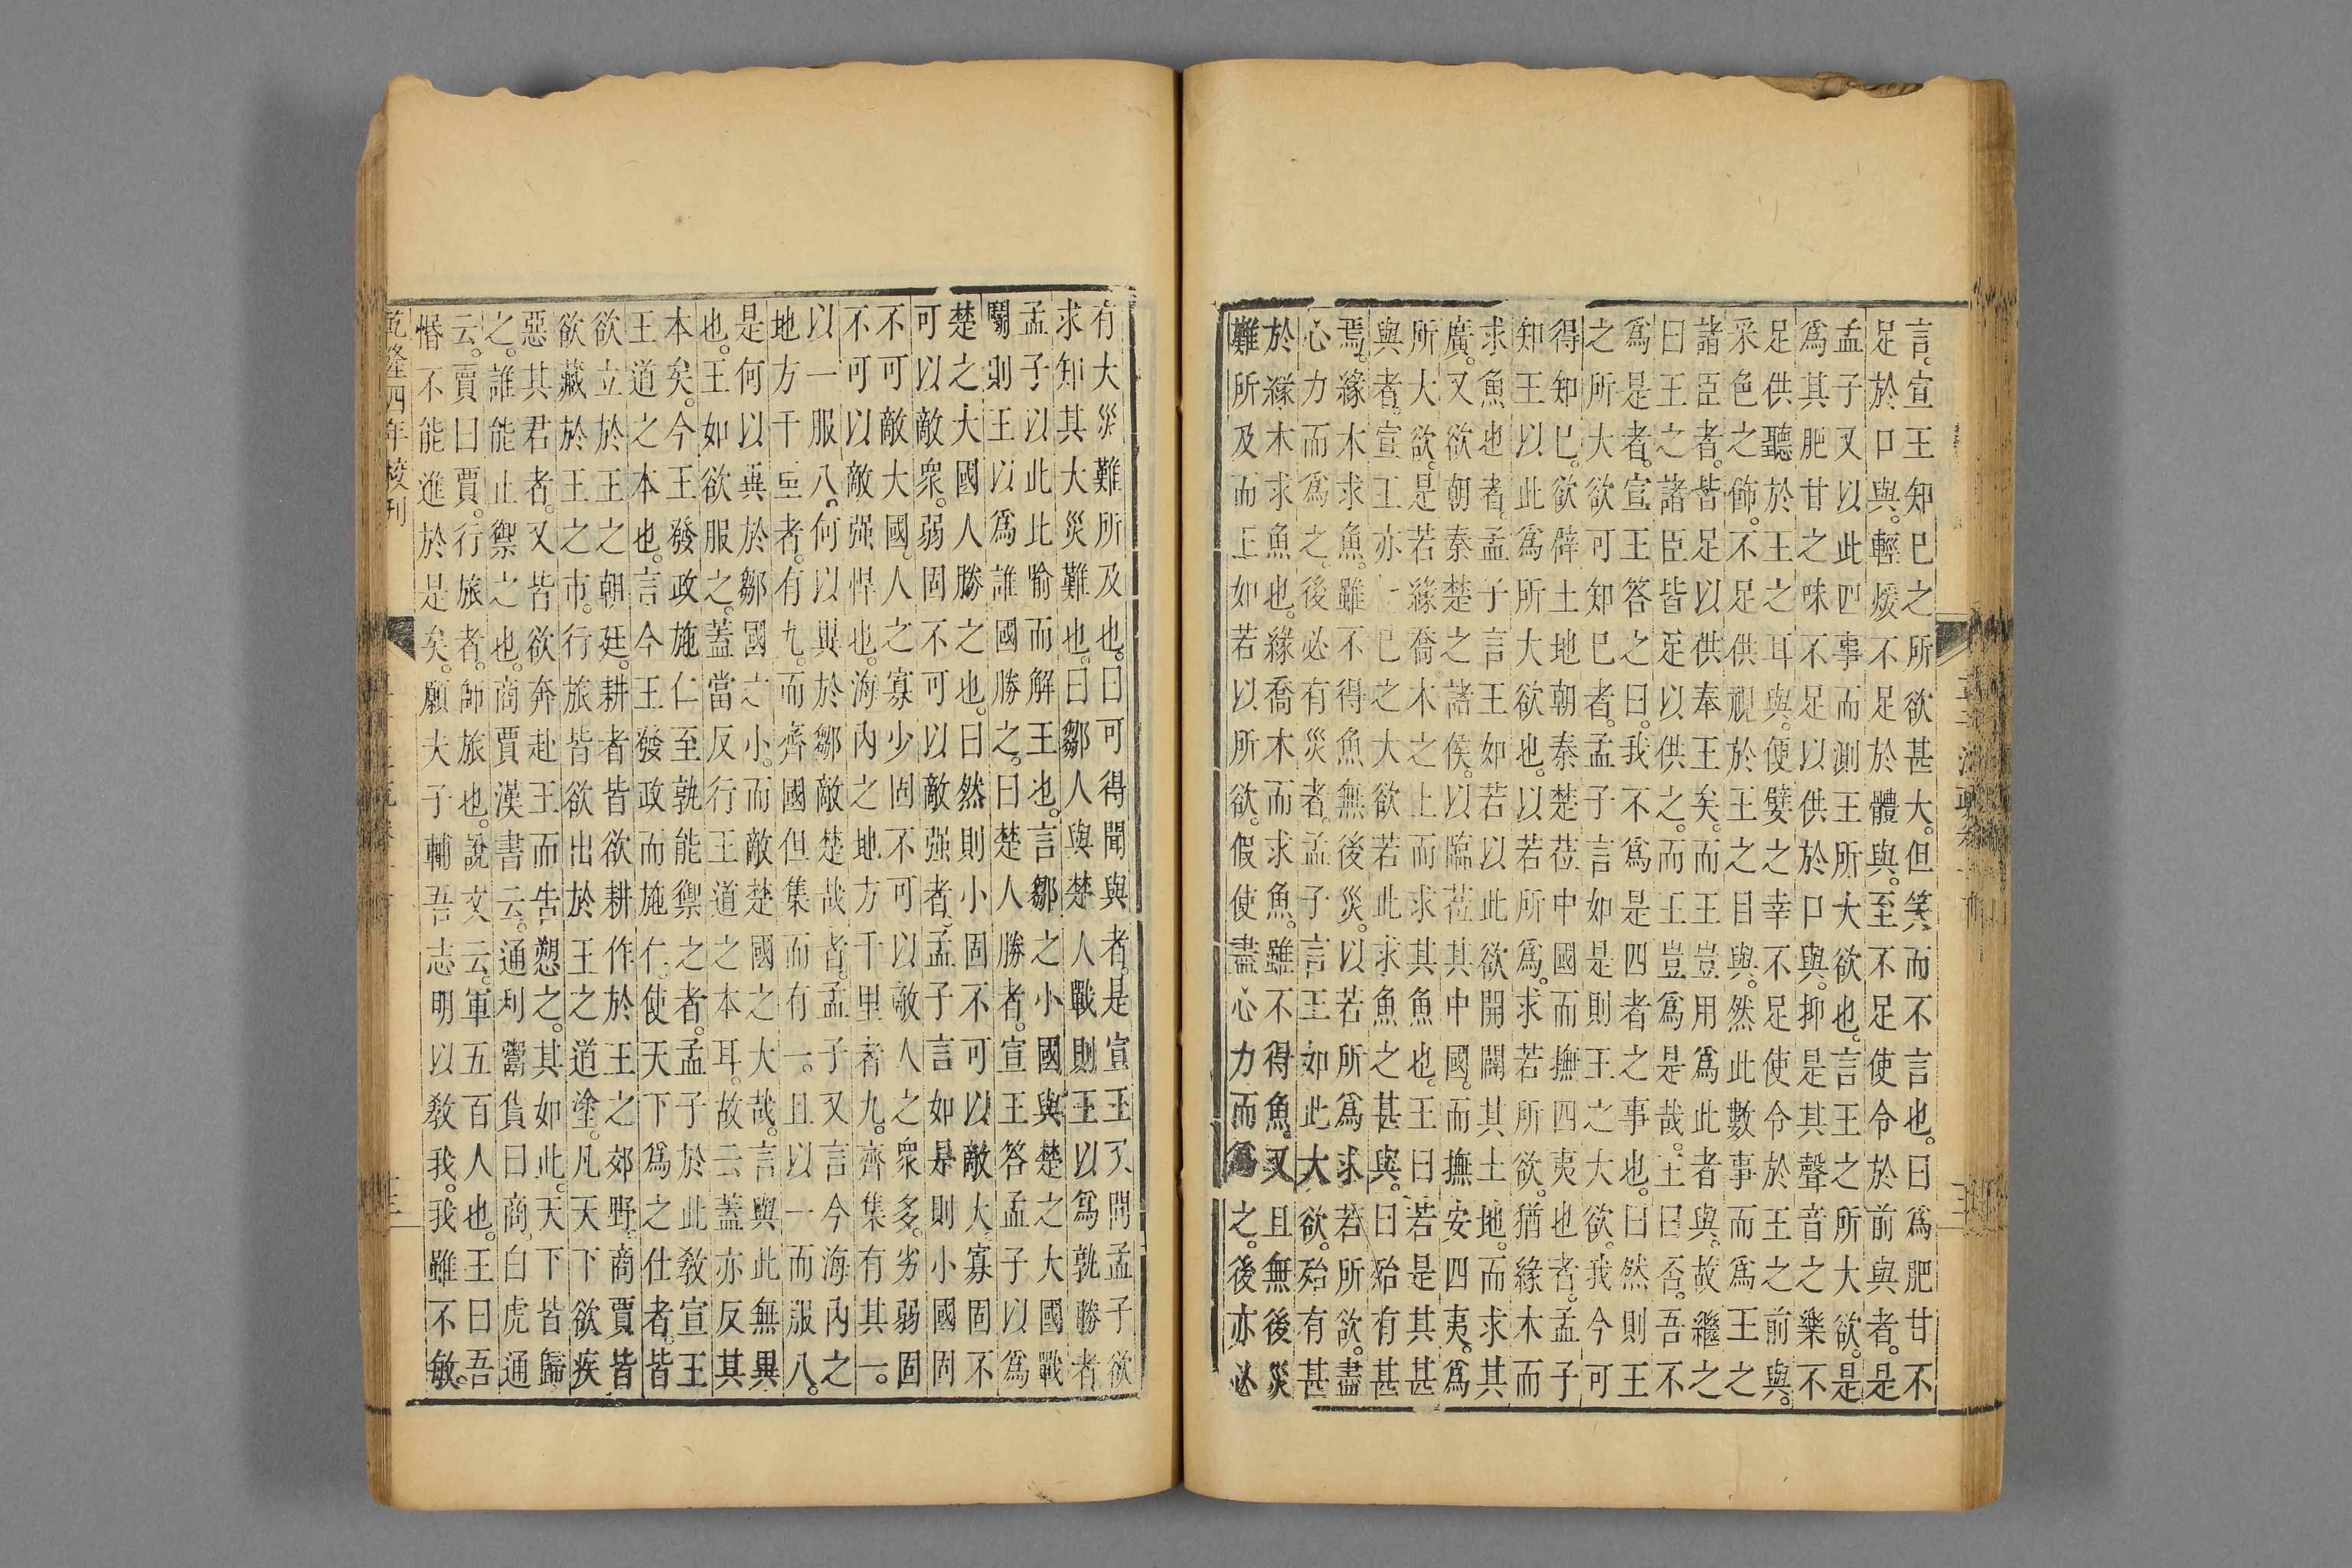 言。宣王知已之所欲甚大。但笑而不言也。曰爲肥甘不
足於口與。輕煖不足於體與。至不足使令於前與者。是
孟子又以此四事而測王所大欲也。言王之所大欲。是
爲其肥甘之味不足以供於口與。抑是其聲音之樂不
足供聽於王之耳與。便嬖之幸不足使令於王之前與。
采色之飾。不足供視於王之目與。然此數事而爲王之
諸臣者。皆足以供奉王矣。而王豈用爲此者與。故繼之
曰王之諸臣皆足以供之。而王豈爲是哉。王曰否。吾不
爲是者。宣王答之曰。我不爲是四者之事也。曰然則王
之所大欲可知已者。孟子言如是則王之大欲。我今可
得知已。欲辟土地朝秦楚莅中國而撫四夷也者。孟子
知王以此爲所大欲也。以若所爲。求若所欲。猶緣木而
求魚也者。孟子言王如若以此欲開闢其土地。而求其
廣。又欲朝秦楚之諸侯。以臨莅其中國。而撫安四夷。爲
所大欲。是若緣喬木之上而求其魚也。王曰若是其甚
與者。宣王亦 已之大欲若此求魚之甚與。曰殆有甚
焉。緣木求魚。雖不得魚無後災。以若所爲求若所欲。盡
心力而爲之。後必有災者。孟子言王如此大欲。殆有甚
於緣木求魚也。緣喬木而求魚。雖不得魚。又且無後災
難所及而王如若以所欲。假使盡心力而爲之。後亦必
有大災難所及也。曰可得聞與者。是宣王又問孟子欲
求知其大災難也。曰鄒人與楚人戰則王以爲孰勝者
孟子以此比喻而解王也。言鄒之小國與楚之大國戰
鬬則王以爲誰國勝之。曰楚人勝者。宣王答孟子以爲
楚之大國人勝之也。曰然則小固不可以敵大。寡固不
可以敵衆。弱固不可以敵强者。孟子言如是則小國固
不可敵大國。人之寡少固不可以敵人之衆多。劣弱固
不可以敵强悍也。海內之地方千里者九。齊集有其一。
以一服八。何以異於鄒敵楚哉者。孟子又言今海內之
地方千里者。有九。而齊國但集而有一。且以一而服八。
是何以異於鄒國之小。而敵楚國之大哉。言與此無異
也。王如欲服之。蓋當反行王道之本耳。故云蓋亦反其
本矣。今王發政施仁至孰能禦之者。孟子於此敎宣王
王道之本也。言今王發政而施仁。使天下爲之仕者。皆
欲立於王之朝廷。耕者皆欲耕作於王之郊野。商賈皆
欲藏於王之市。行旅皆欲出於王之道塗。凡天下欲疾
惡其君者。又皆欲奔赴王而告愬之。其如此。天下皆歸
之。誰能止禦之也。商賈漢書云。通利鬻貨曰商。白虎通
云。賈曰賈。行旅者。師旅也。說文云。軍五百人也。王曰吾
惛不能進於是矣。願夫子輔吾志明以敎我。我雖不敏。
乾隆四年校刊